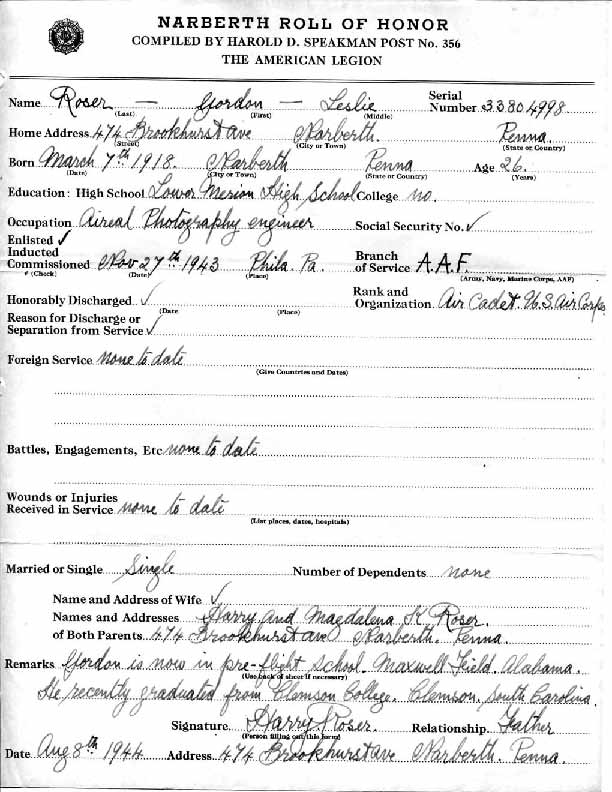 NARBERTH ROLL OF HONOR
COMPILED BY HAROLD D. SPEAKMAN POST No. 356
THE AMERICAN LEGION
Name Roser — Gordon — Leslie Serial Number 33804998
(Last) (First) (Middle)
Home Address 474 Brookhurst Ave Narberth. Penna.
(Street) (City or Town) (State or Country)
Born March 7th 1918 Narberth Penna Age 26.
(Date) (City or Town) (State or Country) (Years)
Education: High School Lower Merion High School College no.
Occupation Aireal Photography engineer Social Security No. ✓
Enlisted ✓
Inducted
Commissioned Nov 27th 1943 Phila. Pa. Branch of Service A.A.F.
* (Check) (Date) (Place) (Army, Navy, Marine Corps, AAF)
Honorably Discharged ✓ Rank and Organization Air Cadet. U.S. Air Corps
(Date (Place)
Reason for Discharge or
Separation from Service ✓
Foreign Service none to date
(Give Countries and Dates)
Battles, Engagements, Etc none to date
Wounds or Injuries
Received in Service none to date
(List places, dates, hospitals)
Married or Single Single Number of Dependents none
Name and Address of Wife ✓
Names and Addresses Harry and Magdalena K. Roser.
of Both Parents 474 Brookhurst ave Narberth. Penna.
Remarks Gordon is now in pre-flight school. Maxwell Field. Alabama.
(Use back of sheet if necessary)
He recently graduated from Clemson College. Clemson. South Carolina
Signature Harry Roser. Relationship Father
(Person filling out this form)
Date Aug 8th 1944 Address 474 Brookhurst ave Narberth. Penna.